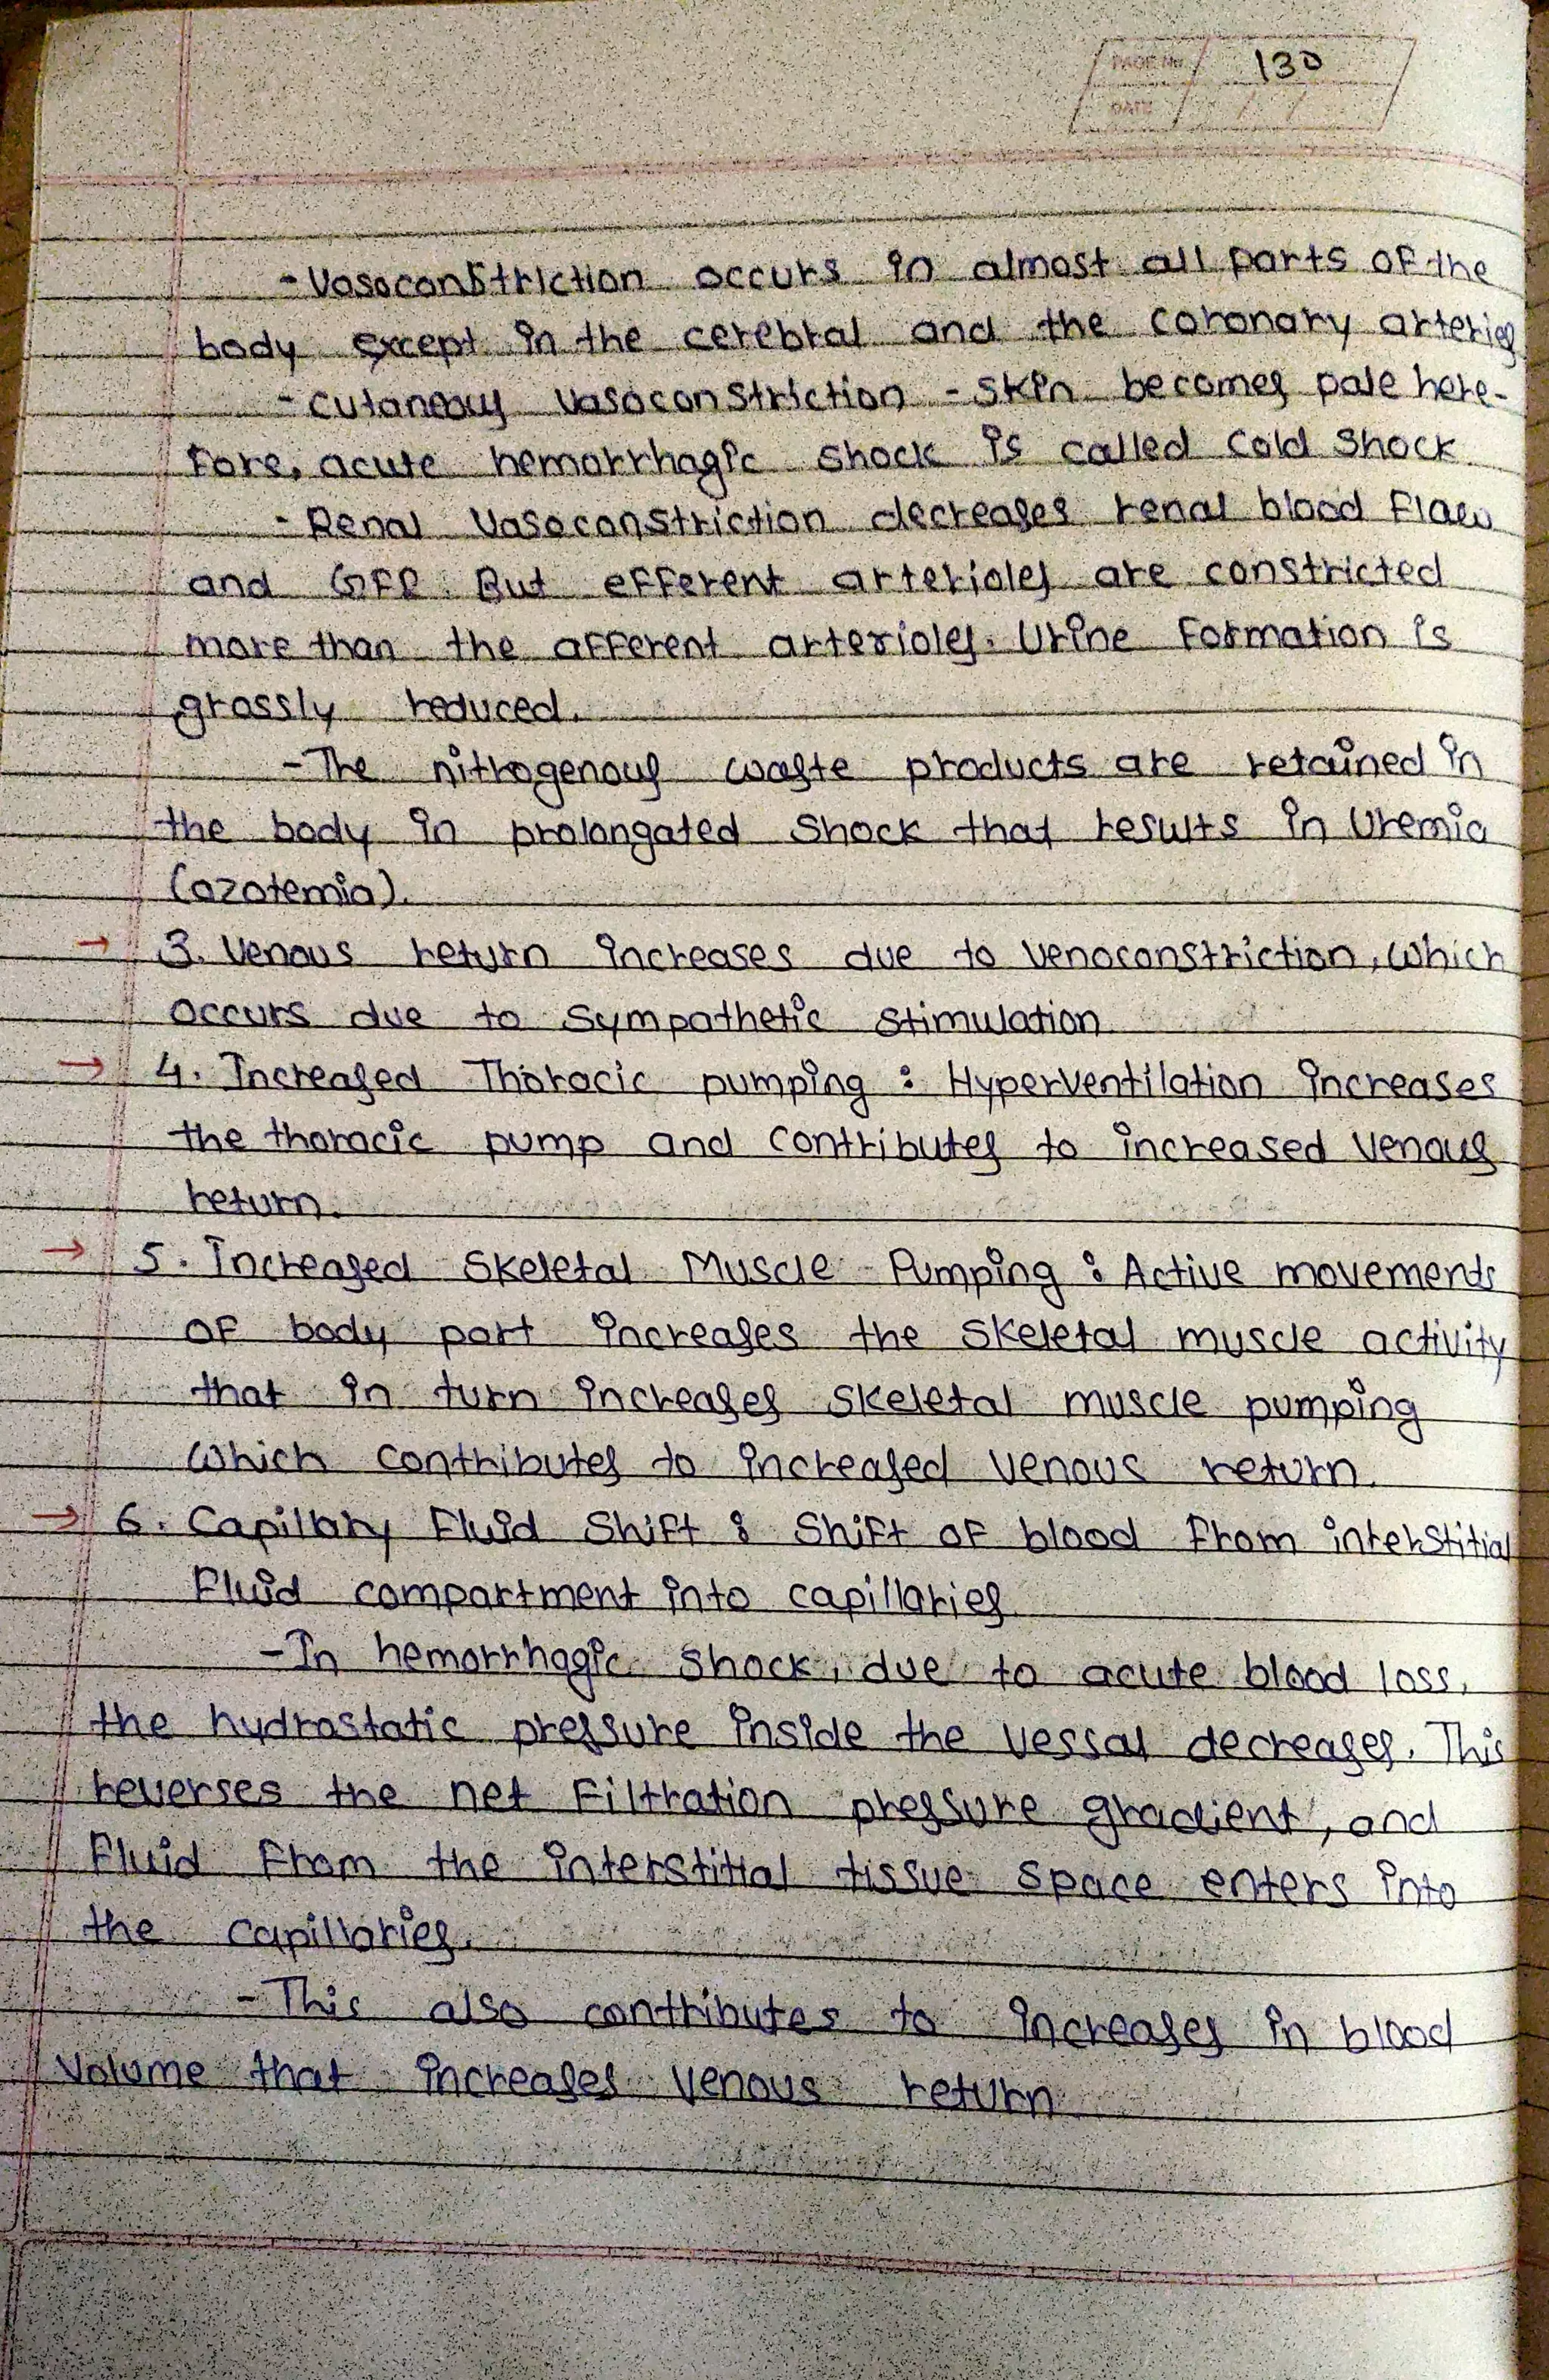 PAGE No. 130
DATE / /
- Vasoconstriction occurs in almost all parts of the
body except in the cerebral and the coronary arteries
- cutaneous vasoconstriction - skin becomes pale here-
fore, acute hemorrhagic shock is called cold shock
- Renal vasoconstriction decreases renal blood flow
and GFR. But efferent arterioles are constricted
more than the afferent arterioles. Urine formation is
grossly reduced.
- The nitrogenous waste products are retained in
the body in prolongated shock that results in Uremia
(azotemia).
→ 3. Venous return increases due to venoconstriction, which
occurs due to sympathetic stimulation
→ 4. Increased Thoracic pumping : Hyperventilation increases
the thoracic pump and contributes to increased venous
return.
→ 5. Increased Skeletal Muscle Pumping : Active movements
of body part increases the skeletal muscle activity
that in turn increases skeletal muscle pumping
which contributes to increased venous return.
→ 6. Capillary Fluid Shift : Shift of blood from interstitial
fluid compartment into capillaries
- In hemorrhagic shock, due to acute blood loss,
the hydrostatic pressure inside the vessal decreases. This
reverses the net filtration pressure gradient, and
fluid from the interstitial tissue space enters into
the capillaries.
- This also contributes to increases in blood
volume that increases venous return